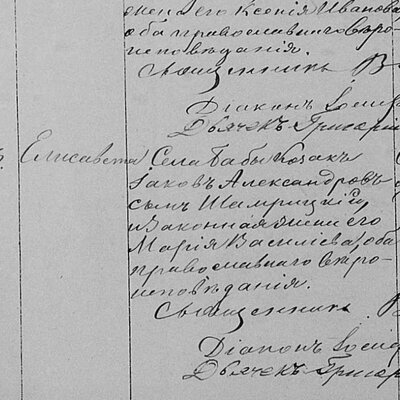 жена его Ксенія Иванова,
оба православнаго вѣро-
исповѣданія.
Священникъ В
Діаконъ Іосиф
Дьячекъ Григорій
Елисавета Села Бабы козакъ
Іаковъ Александровъ
сынъ Шамрицкій,
и законная жена его
Марія Василіева, оба
православнаго вѣро-
исповѣданія.
Священникъ В
Діаконъ Іосиф
Дьячекъ Григор